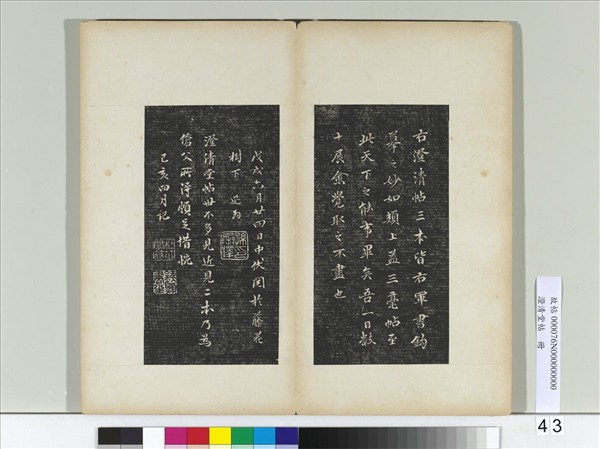 右澄清帖三本皆右軍書鈎
摹之妙如頰上益三毫帖至
此天下之能事畢矣吾一日數
十展愈覺耿々不盡也
戊戌六月廿四日中伏閱於藤花
樹下
澄清堂帖世不多見近見二本乃為
儈父所得頗足惜惋
己亥四月記
故帖 000076N000000000
澄清堂帖 冊
43